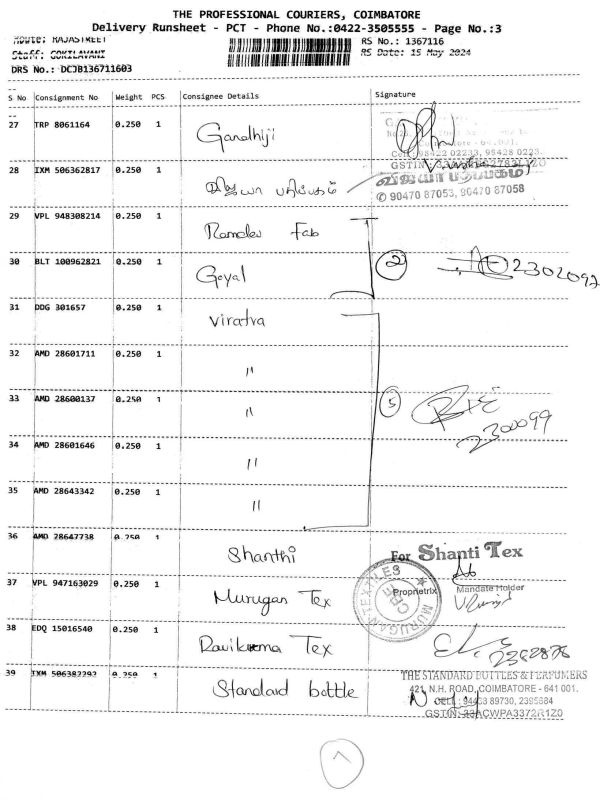 THE PROFESSIONAL COURIERS, COIMBATORE
Delivery Runsheet - PCT - Phone No.:0422-3505555 - Page No.:3
Route: RAJASTREET
RS No.: 1367116
Staff: GOKILAVANI
RS Date: 15 May 2024
DRS No.: DCJB136711603
S No Consignment No Weight PCS Consignee Details Signature
27 TRP 8061164 0.250 1 Gandhiji
98422 02233, 98428 0223
GSTIN
28 IXM 506362817 0.250 1 விஜயா பதிப்பகம்
விஜயா பதிப்பகம்
✆ 90470 87053, 90470 87058
29 VPL 948308214 0.250 1 Ramdev Fab
30 BLT 100962821 0.250 1 Goyal
2 2302092
31 DDG 301657 0.250 1 Viratra
32 AMD 28601711 0.250 1 "
33 AMD 28600137 0.250 1 "
5
2300099
34 AMD 28601646 0.250 1 "
35 AMD 28643342 0.250 1 "
36 AMD 28647738 0.250 1 Shanthi
For Shanti Tex
Proprietrix
Mandate Holder
37 VPL 947163029 0.250 1 Murugan Tex
MURUGAN TEXTILES
CBE
38 EDQ 15016540 0.250 1 Ravikuma Tex
2362878
39 IXM 506382292 0.250 1 Standard bottle
THE STANDARD BOTTLES & PERFUMERS
421, N.H. ROAD, COIMBATORE - 641 001.
CELL : 94433 89730, 2395684
GSTIN: 33ACWPA3372R1Z0